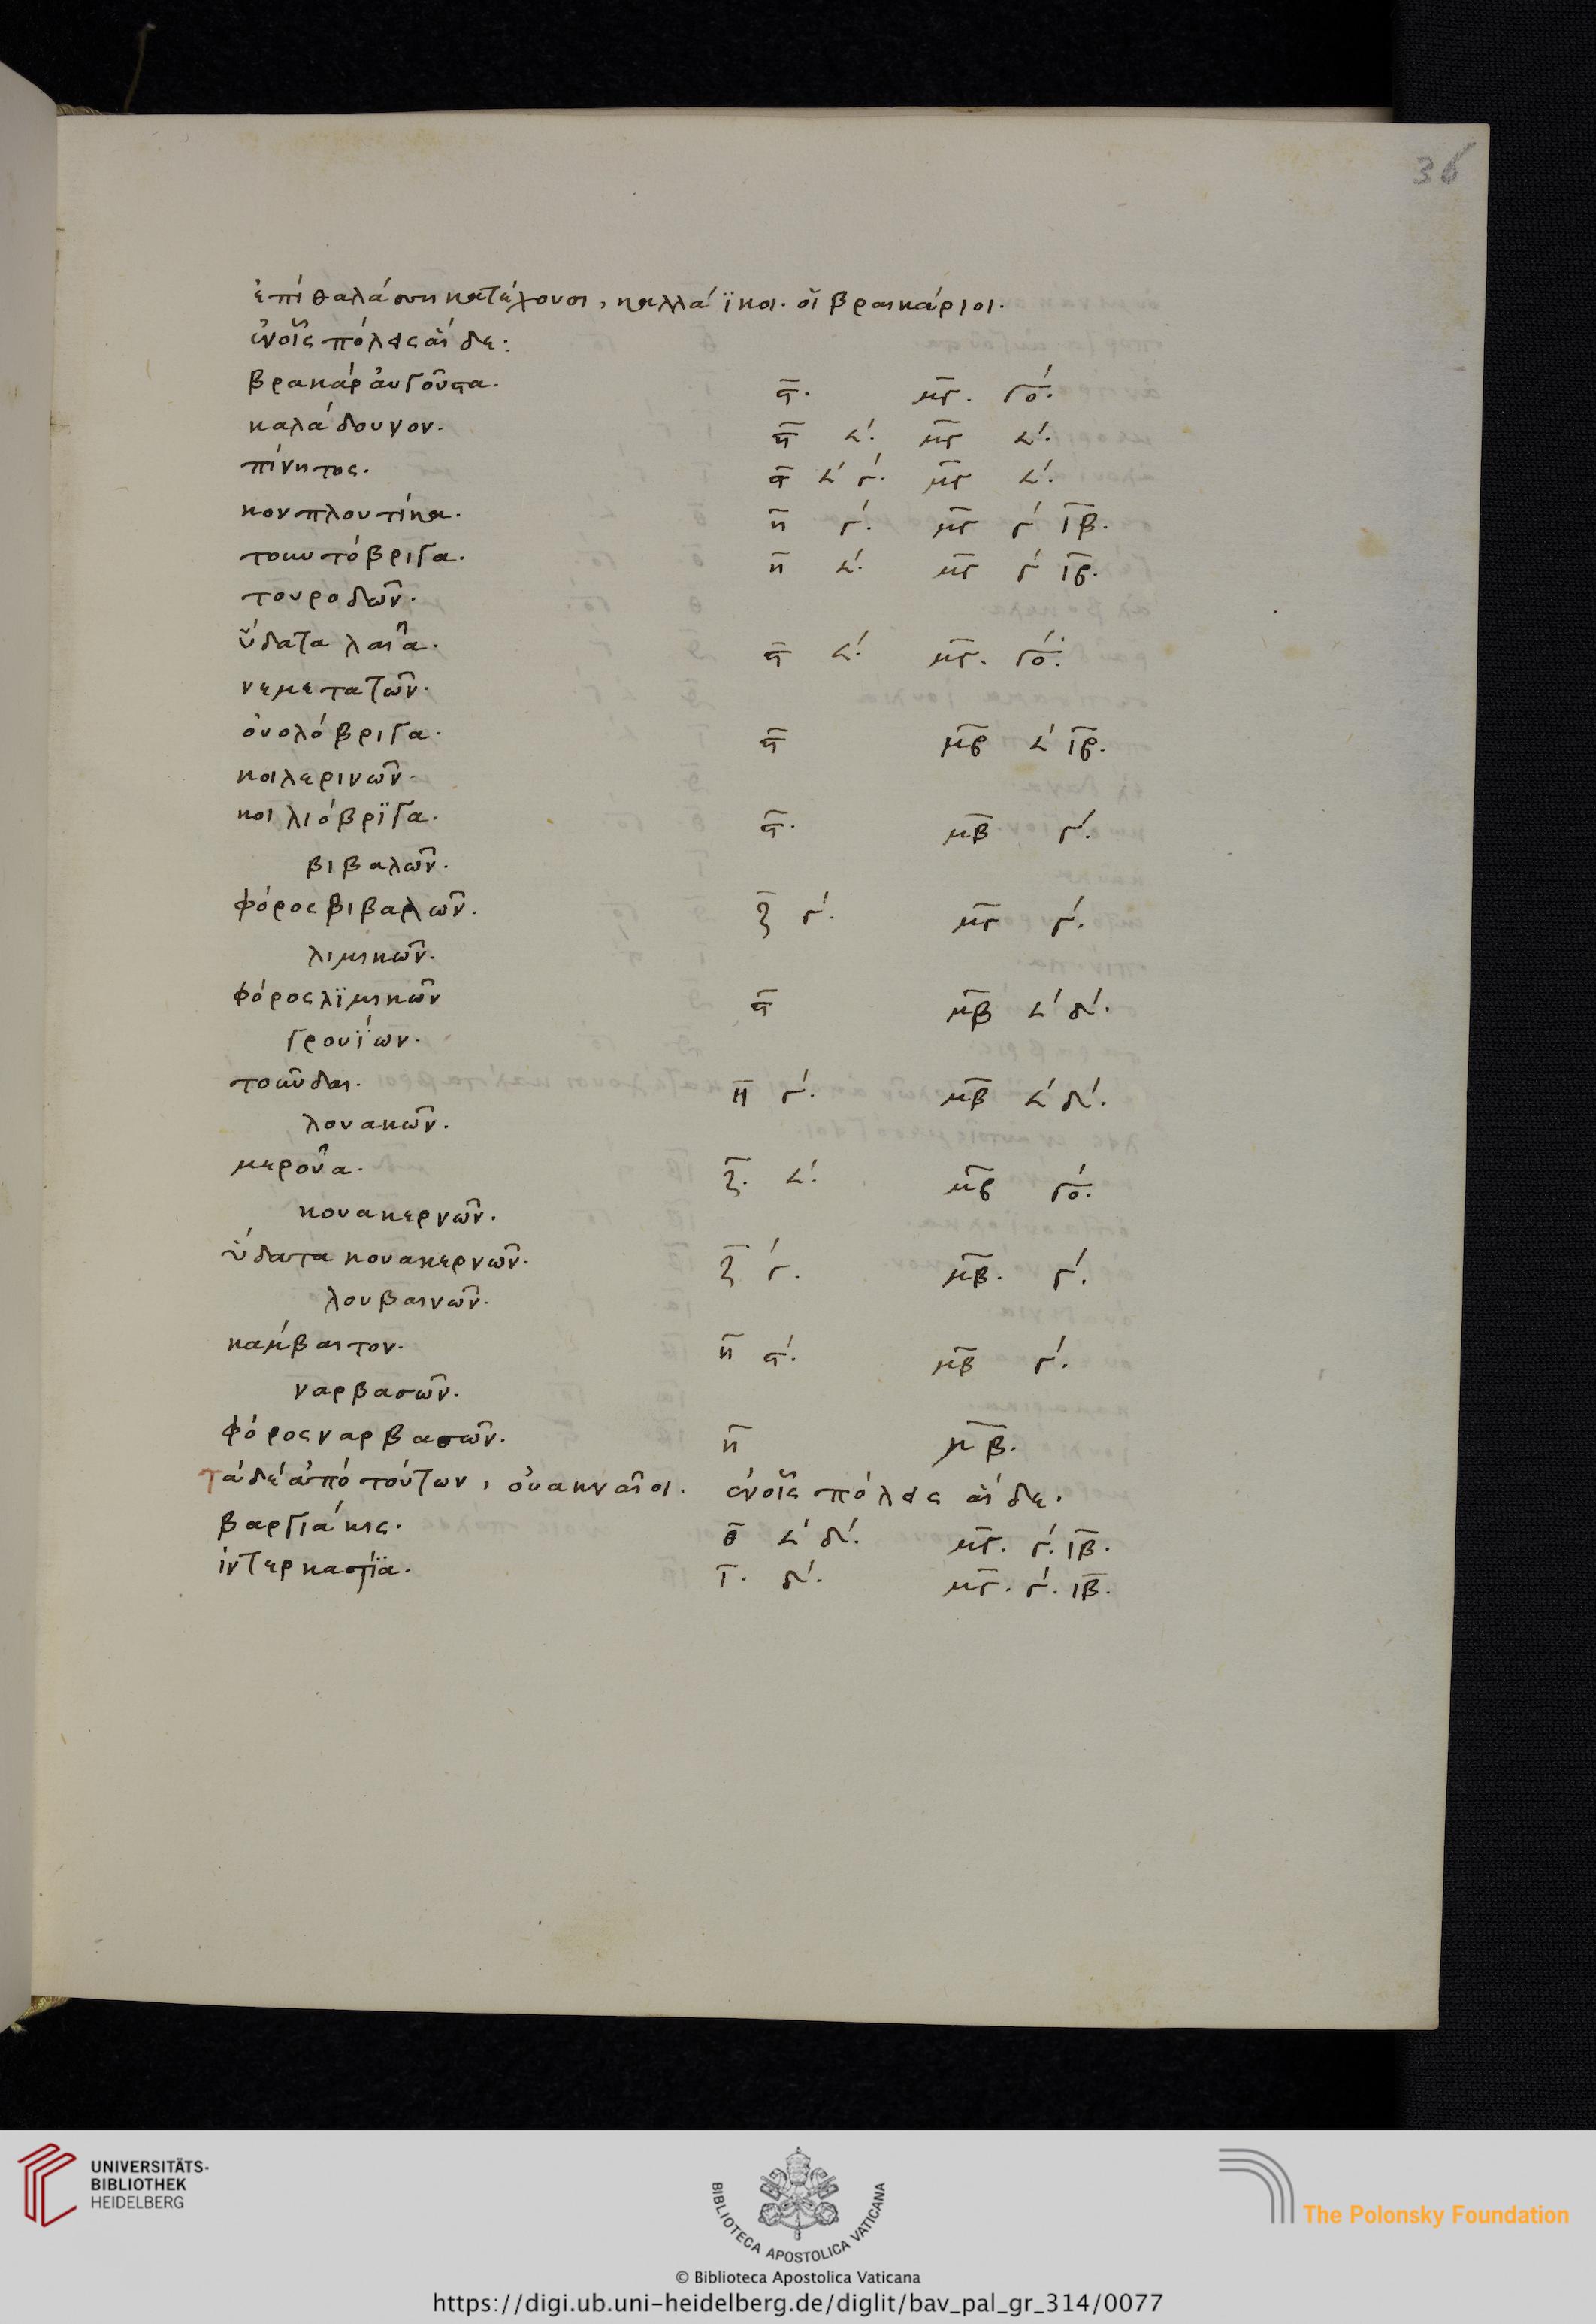 36
ἐπὶ θαλάσση κατέχουσι, καλλάϊκοι. οἱ βραικάριοι.
ἐν οἷς πόλεις αἵδε:
βρακάρ αὐγοῦστα. ϛ̄. μ̄γ. γο΄.
καλάδουνον. η̄ ∠΄. μ̄γ ∠΄.
πίνητος. ϛ̄ ∠΄ γ΄. μ̄γ ∠΄.
κονπλουτίκα. η̄ γ΄. μ̄γ γ΄ ῑβ.
τουντόβριγα. η̄ ∠΄. μ̄γ γ΄ ῑβ.
τουροδῶν.
ὕδατα λαιᾶ. ϛ̄ ∠΄. μ̄γ. γο΄.
νεμετατῶν.
ὀυολόβριγα. ϛ̄ μ̄β ∠΄ ῑβ.
κοιλερινῶν.
κοιλιόβρϊγα. ϛ̄. μ̄β γ΄.
βιβαλῶν.
φόρος βιβαλῶν. ζ̄ γ΄. μ̄γ γ΄.
λιμικῶν.
φόρος λϊμικῶν ϛ̄ μ̄β ∠΄ δ΄.
γρουΐων.
τοῦνδαι. η̄ γ΄. μ̄β ∠΄ δ΄.
λουακῶν.
μεροῦα. ζ̄. ∠΄. μ̄β γο΄.
κουακερνῶν.
ὕδατα κουακερνῶν. ζ̄ γ΄. μ̄β. γ΄.
λουβαινῶν.
κάμβαιτον. η̄ ϛ΄. μ̄β γ΄.
ναρβασῶν.
φόρος ναρβασῶν. η̄ μ̄β.
τὰ δὲ ἀπὸ τούτων, ὀυακναῖοι. ἐν οἷς πόλεις αἵδε.
βαργιάκις. θ̄ ∠΄ δ΄. μ̄γ. γ΄. ῑβ.
ἰντερκατϊα. ῑ. δ΄. μ̄γ. γ΄. ῑβ.
UNIVERSITÄTS-
BIBLIOTHEK
HEIDELBERG
BIBLIOTECA APOSTOLICA VATICANA
The Polonsky Foundation
© Biblioteca Apostolica Vaticana
https://digi.ub.uni-heidelberg.de/diglit/bav_pal_gr_314/0077